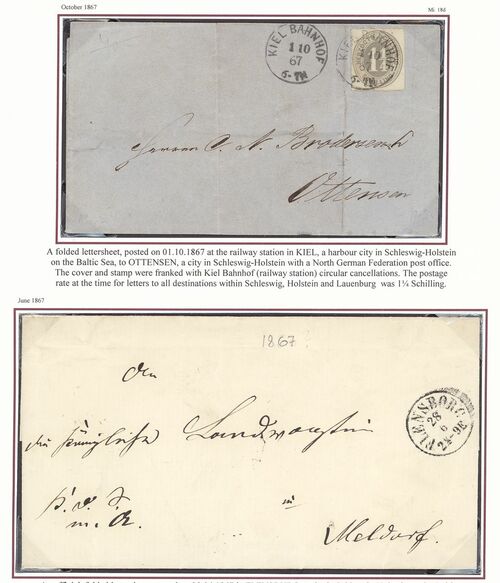 October 1867
Mi 18d
KIEL BAHNHOF
1 10
67
5-7N
KIEL BAHNHOF
1 10
67
5-7N
1¼
Herrn C. N. Brodersen
Ottensen
A folded lettersheet, posted on 01.10.1867 at the railway station in KIEL, a harbour city in Schleswig-Holstein
on the Baltic Sea, to OTTENSEN, a city in Schleswig-Holstein with a North German Federation post office.
The cover and stamp were franked with Kiel Bahnhof (railway station) circular cancellations. The postage
rate at the time for letters to all destinations within Schleswig, Holstein and Lauenburg was 1¼ Schilling.
June 1867
1867
An
die Königliche Landvogtei
FLENSBORG
28
6
zu
Meldorf.